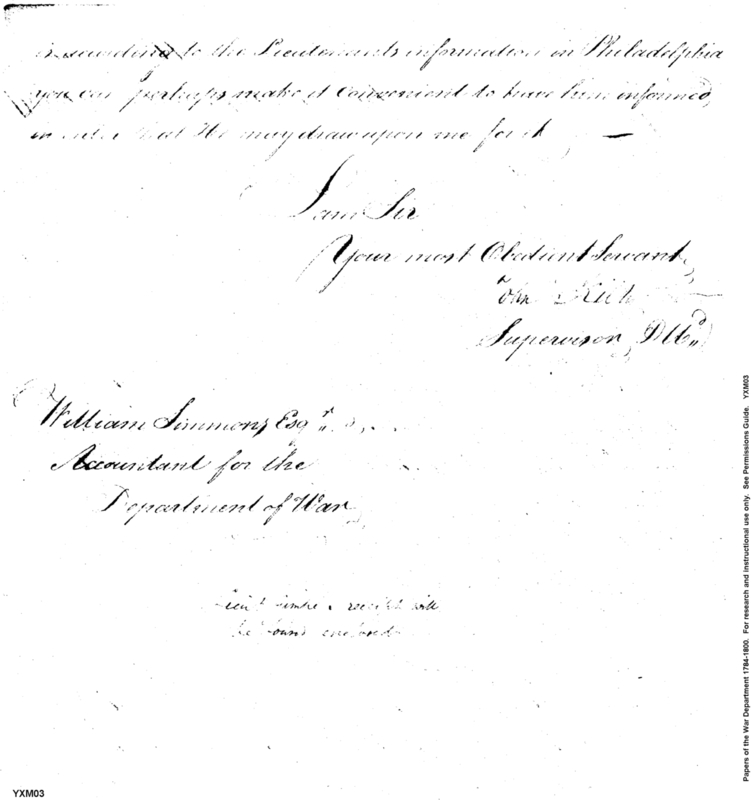 is according to the Lieutenants information in Philadelphia
you can perhaps make it convenient to have him informed,
in order that He may draw upon me for it —
I am Sir
Your most Obedient Servant,
John
Supervisor, D
William Simmons, Esqr.
Accountant for the
Department of War
receipt will
be found enclosed
Papers of the War Department 1784-1800. For research and instructional use only. See Permissions Guide. YXM03
YXM03